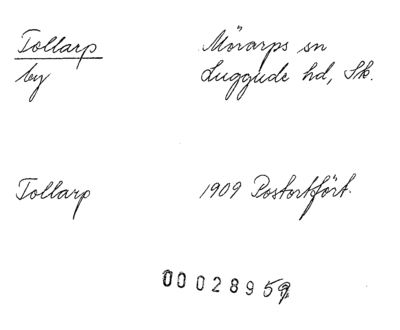 Tollarp Mörarps sn
by Luggude hd, Sk.
Tollarp 1909 Postortsfört.